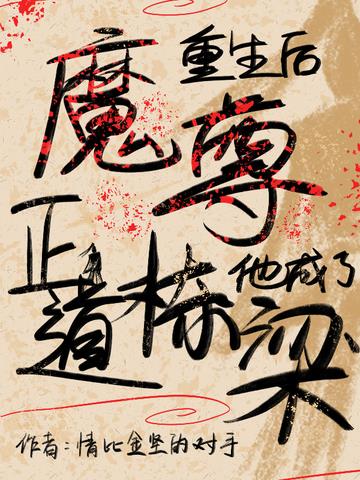 重生后
魔尊
他成了
正道栋梁
作者:情比金坚的对手